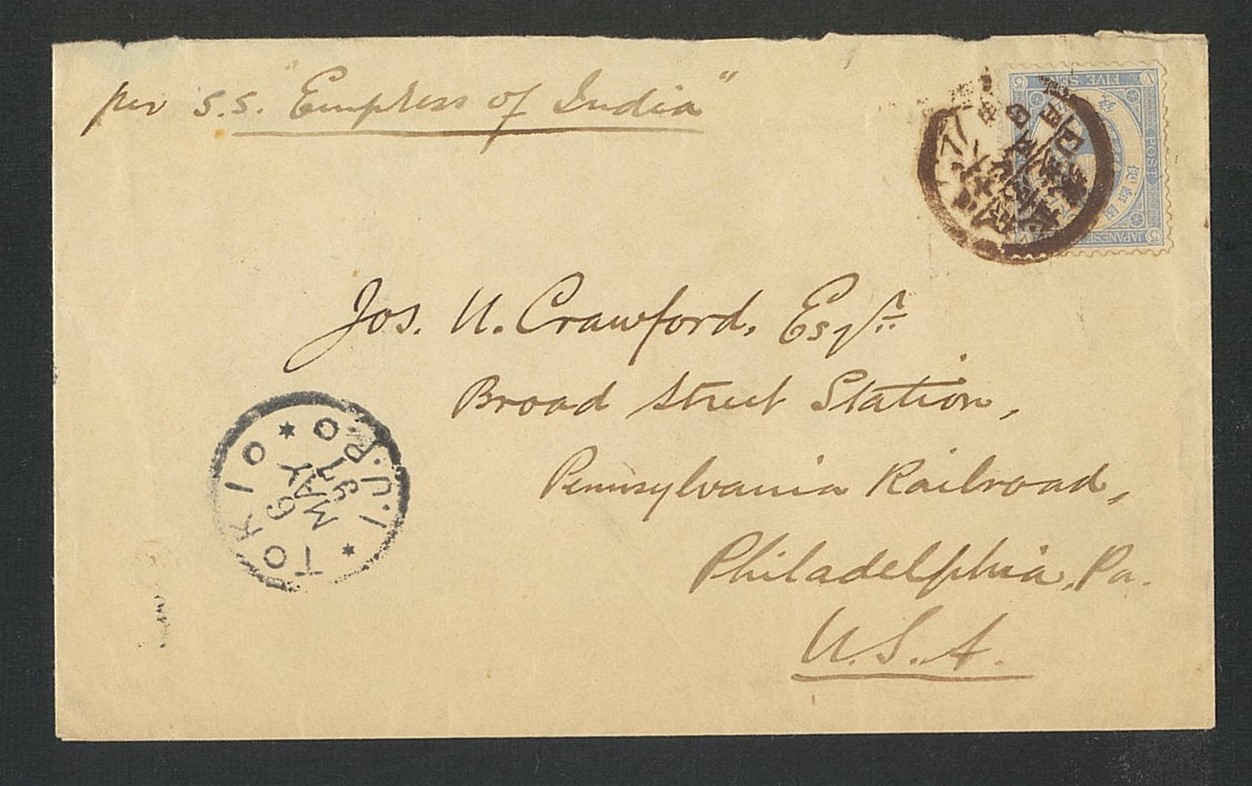 per S.S. "Empress of India"
FIVE SEN
POST
JAPANESE
5
V
Jos. U. Crawford, Esqr.
Broad Street Station,
Pennsylvania Railroad,
Philadelphia, Pa.
U.S.A.
TOKIO
6 MAY
97
I.J.P.O